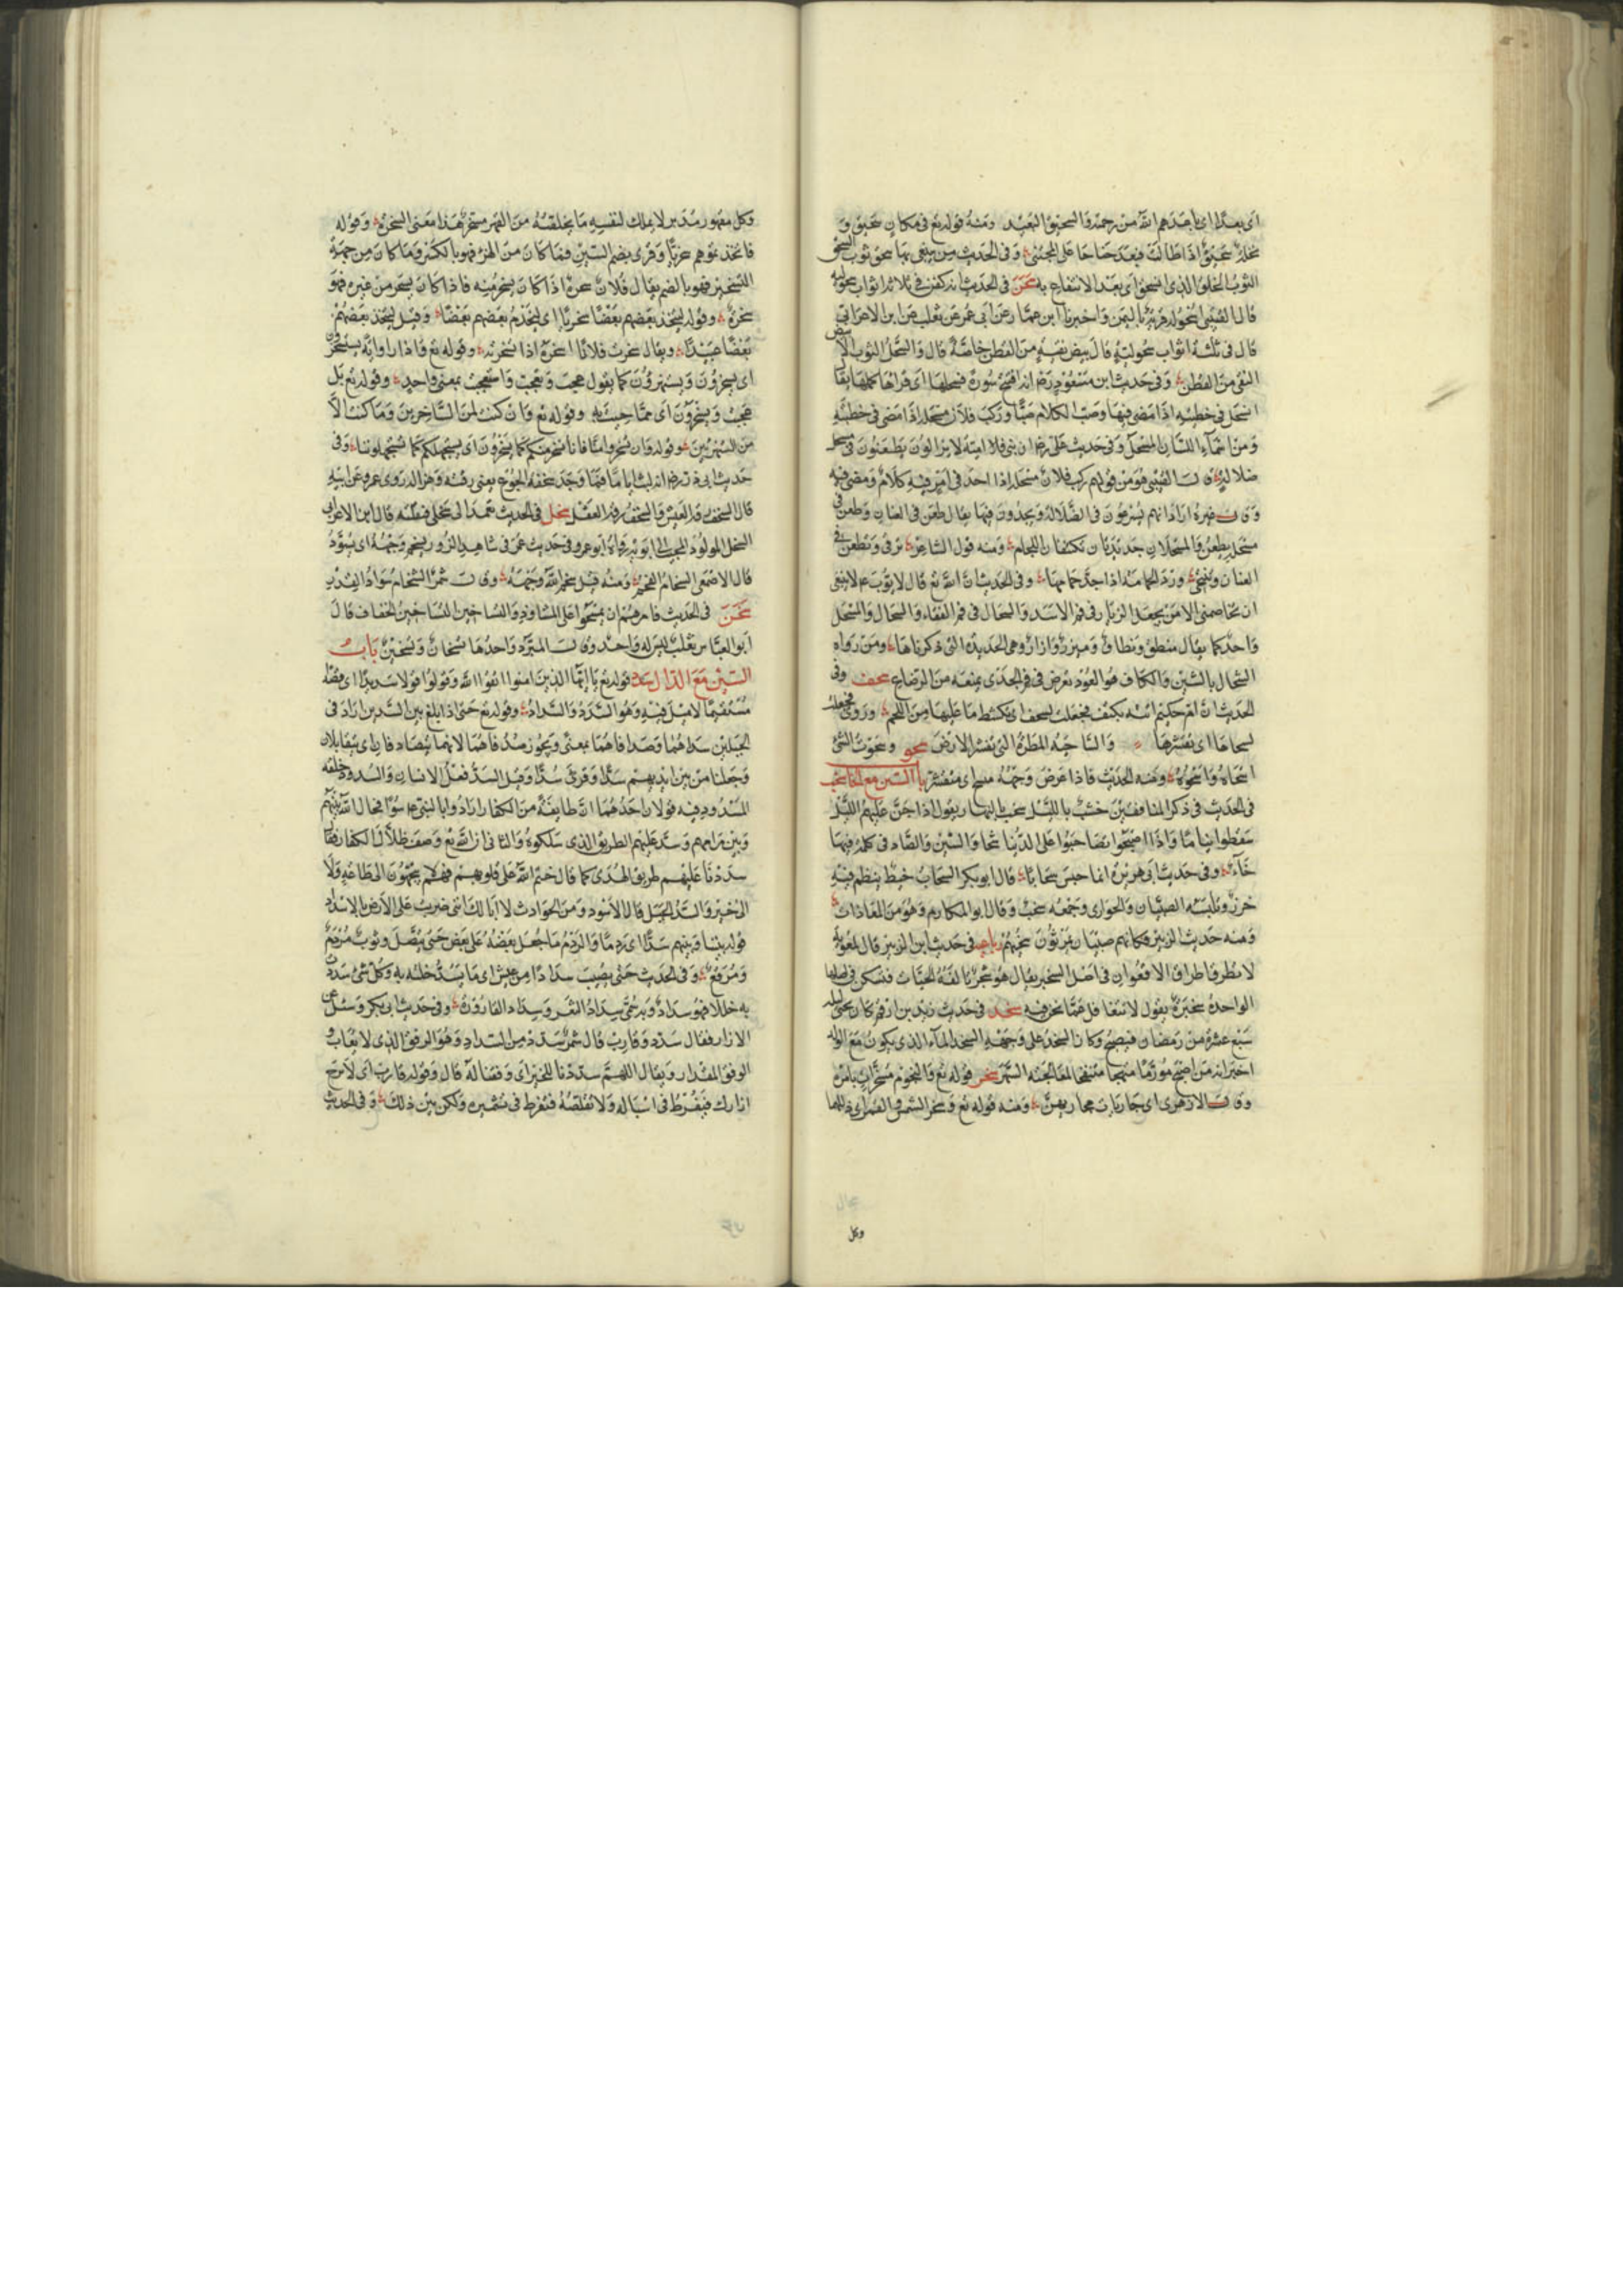 اى بعدا اى باعدهم الله من رحمته والسحيق البعيد ومنه قوله تع فى مكان سحيق و
نخلة سحيق اذا طالت فبعد جناها على المجتنى وفى الحديث من يبيعنى بها سحق ثوب السحق
الثوب الخلق الذى انسحق اى بعد الانتفاع به سحل فى الحديث انه كفن فى ثلاثة اثواب سحولية
قال القتيبى سحول قرية باليمن واخبرنا ابن عمار عن ابى عمر عن ثعلب عن ابن الاعرابى
قال فى ثلثة اثواب سحولية قال بيض نقية من القطن خاصة قال والسحل الثوب الابيض
النقى من القطن وفى حديث ابن مسعود رض انه افتتح سورة فسحلها اى قراها كلها يقال
انسحل فى خطبته اذا مضى فيها وصب الكلام صبا وركب فلان مسحله اذا مضى فى خطبته
ومن اسماء اللسان المسحل وفى حديث على رض ان بنى امية لا يزالون يطعنون فى مسحل
ضلالة قال القتيبى هو من قولهم ركب فلان مسحله اذا اخذ فى امر فيه كلام ومضى فيه
وقال غيره اراد انهم يسرعون فى الضلالة ويجدون فيها يقال طعن فى العنان وطعن فى
مسحله يطعن والمسحلان حديدتان تكتنفان اللجام ومنه قول الشاعر ترقى وتطعن فى
العنان وتنتحى ورد الحمامة اذا جد حمامها وفى الحديث ان الله تع قال لايوب عم لا ينبغى
ان يخاصمنى الا من يجعل الزيار فى فم الاسد والسحال فى فم العنقاء والسحال والمسحل
واحد كما يقال منطق ونطاق وميزر وازار وهى الحديدة التى ذكرناها ومن رواه
الشحال بالشين والكاف هو العود يعرض فى فم الجدى يمنعه من الرضاع سحف وفى
الحديث ان ام حكيم اتته بكتف فجعلت تسحف اى تكشط ما عليها من اللحم وروى فجعلت
تسحاها اى تقشرها والساحية المطرة التى تقشر الارض سحو وسحوت الشئ
اسحاه واسحوه ومنه الحديث فاذا عرض وجهه منسح اى منقشر باب السين مع الخاء سخب
فى الحديث فى ذكر المنافقين خشب بالليل سخب بالنهار يقول اذا جن عليهم الليل
سقطوا نياما واذا اصبحوا تصاخبوا على الدنيا شحا والسين والصاد فى كلمة فيها
خاء وفى حديث ابى هريرة انما حبس سخابا قال ابو بكر السخاب خيط ينظم فيه
خرز وتلبسه الصبيان والجوارى وجمعه سخب وقال ابو المكارم وهو من المعاذات
ومنه حديث الزبير فكانهم صبيان يمرثون سخبهم سخبر فى حديث ابن الزبير قال لمعوية
لا تطرق اطراق الافعوان فى اصل السخبر يقال هو شجر تالفه الحيات فتسكن فى اصلها
الواحدة سخبرة يقول لا تتغافل عما نحن فيه سخد فى حديث زيد بن ارقم كان يحيى ليلة
سبع عشرة من رمضان فيصبح وكان السخد على وجهه السخد الماء الذى يكون مع الولد
اخبر انه من اصبح مورما منتفخا لمعالجته السهر سخر قوله تع والنجوم مسخرات بامره
وقال الازهرى اى جاريات مجاريهن ومنه قوله تع وسخر الشمس والقمر اى ذللهما
وكل
وكل مقهور مدبر لا يملك لنفسه ما يخلصه من القهر مسخر هذا معنى السخرة وقوله
فاتخذتموهم سخريا وقرى بضم السين فما كان من الهزء فهو بالكسر وما كان من جهة
التسخير فهو بالضم يقال فلان سخرة اذا كان يسخر منه فاذا كان يسخر من غيره فهو
سخرة وقوله ليتخذ بعضهم بعضا سخريا اى ليخدم بعضهم بعضا وقيل ليتخذ بعضهم
بعضا عبيدا ويقال سخرت فلانا اسخره اذا تسخرته وقوله تع واذا راوا اية يستسخرون
اى يسخرون ويستهزؤن كما يقول عجب وتعجب واستعجب بمعنى واحد وقوله تع بل
عجبت ويسخرون اى مما جيت به وقوله تع وان كنت لمن الساخرين وما كنت الا
من المستهزئين وقوله وان تسخروا منا فانا نسخر منكم كما تسخرون اى نستجهلكم كما تستجهلوننا وفى
حديث ابى ذر رض انه لبث اياما فما وجد سخفة الجوع يعنى رقته وهزاله روى عمرو عن ابيه
قال السخف رقة العيش والسخف رقة العقل سخل فى الحديث عمد الى سخلى فقتله قال ابن الاعرابى
السخل المولود المحبب الى ابويه رواه ابو عمرو فى حديث عمر فى شاهد الزور يسخم وجهه اى يسود
قال الاصمعى السخام الفحم ومنه قيل سخم الله وجهه وقال شمر السخام سواد القدر
سخن فى الحديث فامرهم ان يمسحوا على المشاوذ والتساخين التساخين الخفاف قال
ابو العباس ثعلب ليس له واحد وقال المبرد واحدها تسخان وتسخين باب
السين مع الدال سدد قوله تع يا ايها الذين امنوا اتقوا الله وقولوا قولا سديدا اى قصدا
مستقيما لا ميل فيه وهو السدد والسداد وقوله تع حتى اذا بلغ بين السدين اراد فى
الجبلين سداهما وصداهما بمعنى ويجوز صد فاهما لانهما يتصادفان اى يتقابلان
وجعلنا من بين ايديهم سدا وقرئ سدا وقيل السد فعل الانسان والسد خلقه
المسدود فيه قولان احدهما ان طايفة من الكفار ارادوا بالنبى عم سوءا فحال الله بينهم
وبين مرامهم وسد عليهم الطريق الذى سلكوه والثانى ان الله تع وصف ضلال الكفار فقال
سددنا عليهم طريق الهدى كما قال ختم الله على قلوبهم فهم لا يهتدون الى طاعة ولا
الى خير والسد الجبل قال الاسود ومن الحوادث لا ابالك اننى ضربت على الارض بالاسداد
قوله بيننا وبينهم سدا اى ردما والردم ما جعل بعضه على بعض حتى يتصل وثوب مردم
ومرقع وفى الحديث حتى يصيب سدادا من عيش اى ما يسد خلته به وكل شئ سددت
به خللا فهو سداد وبه سمى سداد الثغر وسداد القارورة وفى حديث ابى بكر وسئل عن
الازار فقال سدد وقارب قال شمر سدد من السداد وهو الوفق الذى لا يعاب و
الوفق المقدار ويقال اللهم سددنا للخير اى وفقنا له قال وقوله قارب اى لا ترخ
ازارك فتفرط فى اسباله ولا تقلصه فتفرط فى تشميره ولكن بين ذلك وفى الحديث